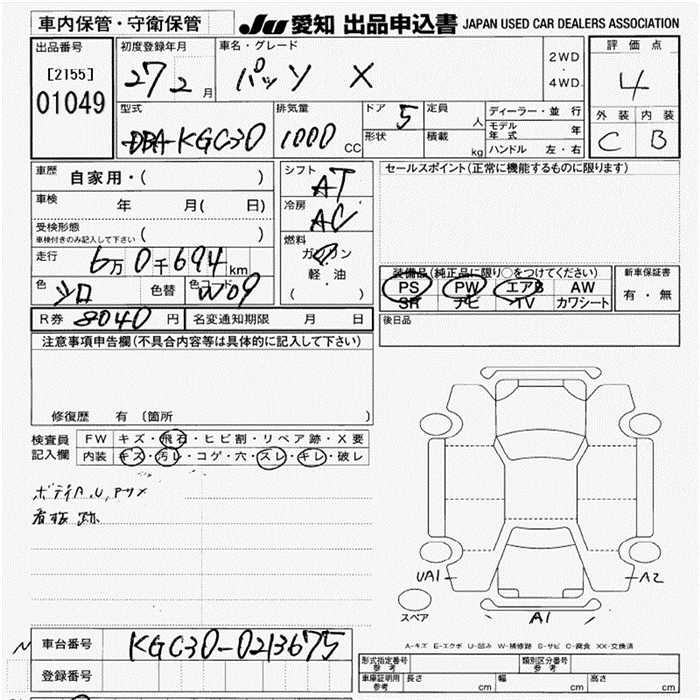 車内保管・守衛保管
JU 愛知 出品申込書 JAPAN USED CAR DEALERS ASSOCIATION
出品番号 [2155] 01049
初度登録年月 27 2 月
車名・グレード パッソ X
2WD・4WD
評価点 4
外装 内装
C B
型式 DBA-KGC30
排気量 1000 CC
ドア 5 定員 人
形状 積載 kg
ディーラー・並行
モデル年式 年
ハンドル 左・右
車歴 自家用・( )
車検 年 月( 日)
受検形態
車検付きのみ記入して下さい ( )
走行 6万0千694km
色 シロ 色替 色コード W09
シフト AT
冷房 AC
燃料 ガソリン
軽・油
( )
セールスポイント(正常に機能するものに限ります)
装備品(純正品に限り○をつけてください)
PS PW エアB AW
SR ナビ TV カワシート
新車保証書
有・無
R券 8040 円 名変通知期限 月 日
後日品
注意事項申告欄(不具合内容等は具体的に記入して下さい)
修復歴 有 〔箇所 〕
検査員記入欄
FW キズ・飛石・ヒビ割・リペア跡・X要
内装 キズ・汚レ・コゲ・穴・スレ・キレ・破レ
ボディA,U,Pサメ
看板跡
UA1
A2
A1
スペア
A-キズ E-エクボ U-凹み W-補修跡 S-サビ C-腐食 XX-交換済
車台番号 KGC30-0213675
登録番号
形式指定番号 参考
類別区分番号 参考
車庫証明用 参考 長さ cm 幅 cm 高さ cm